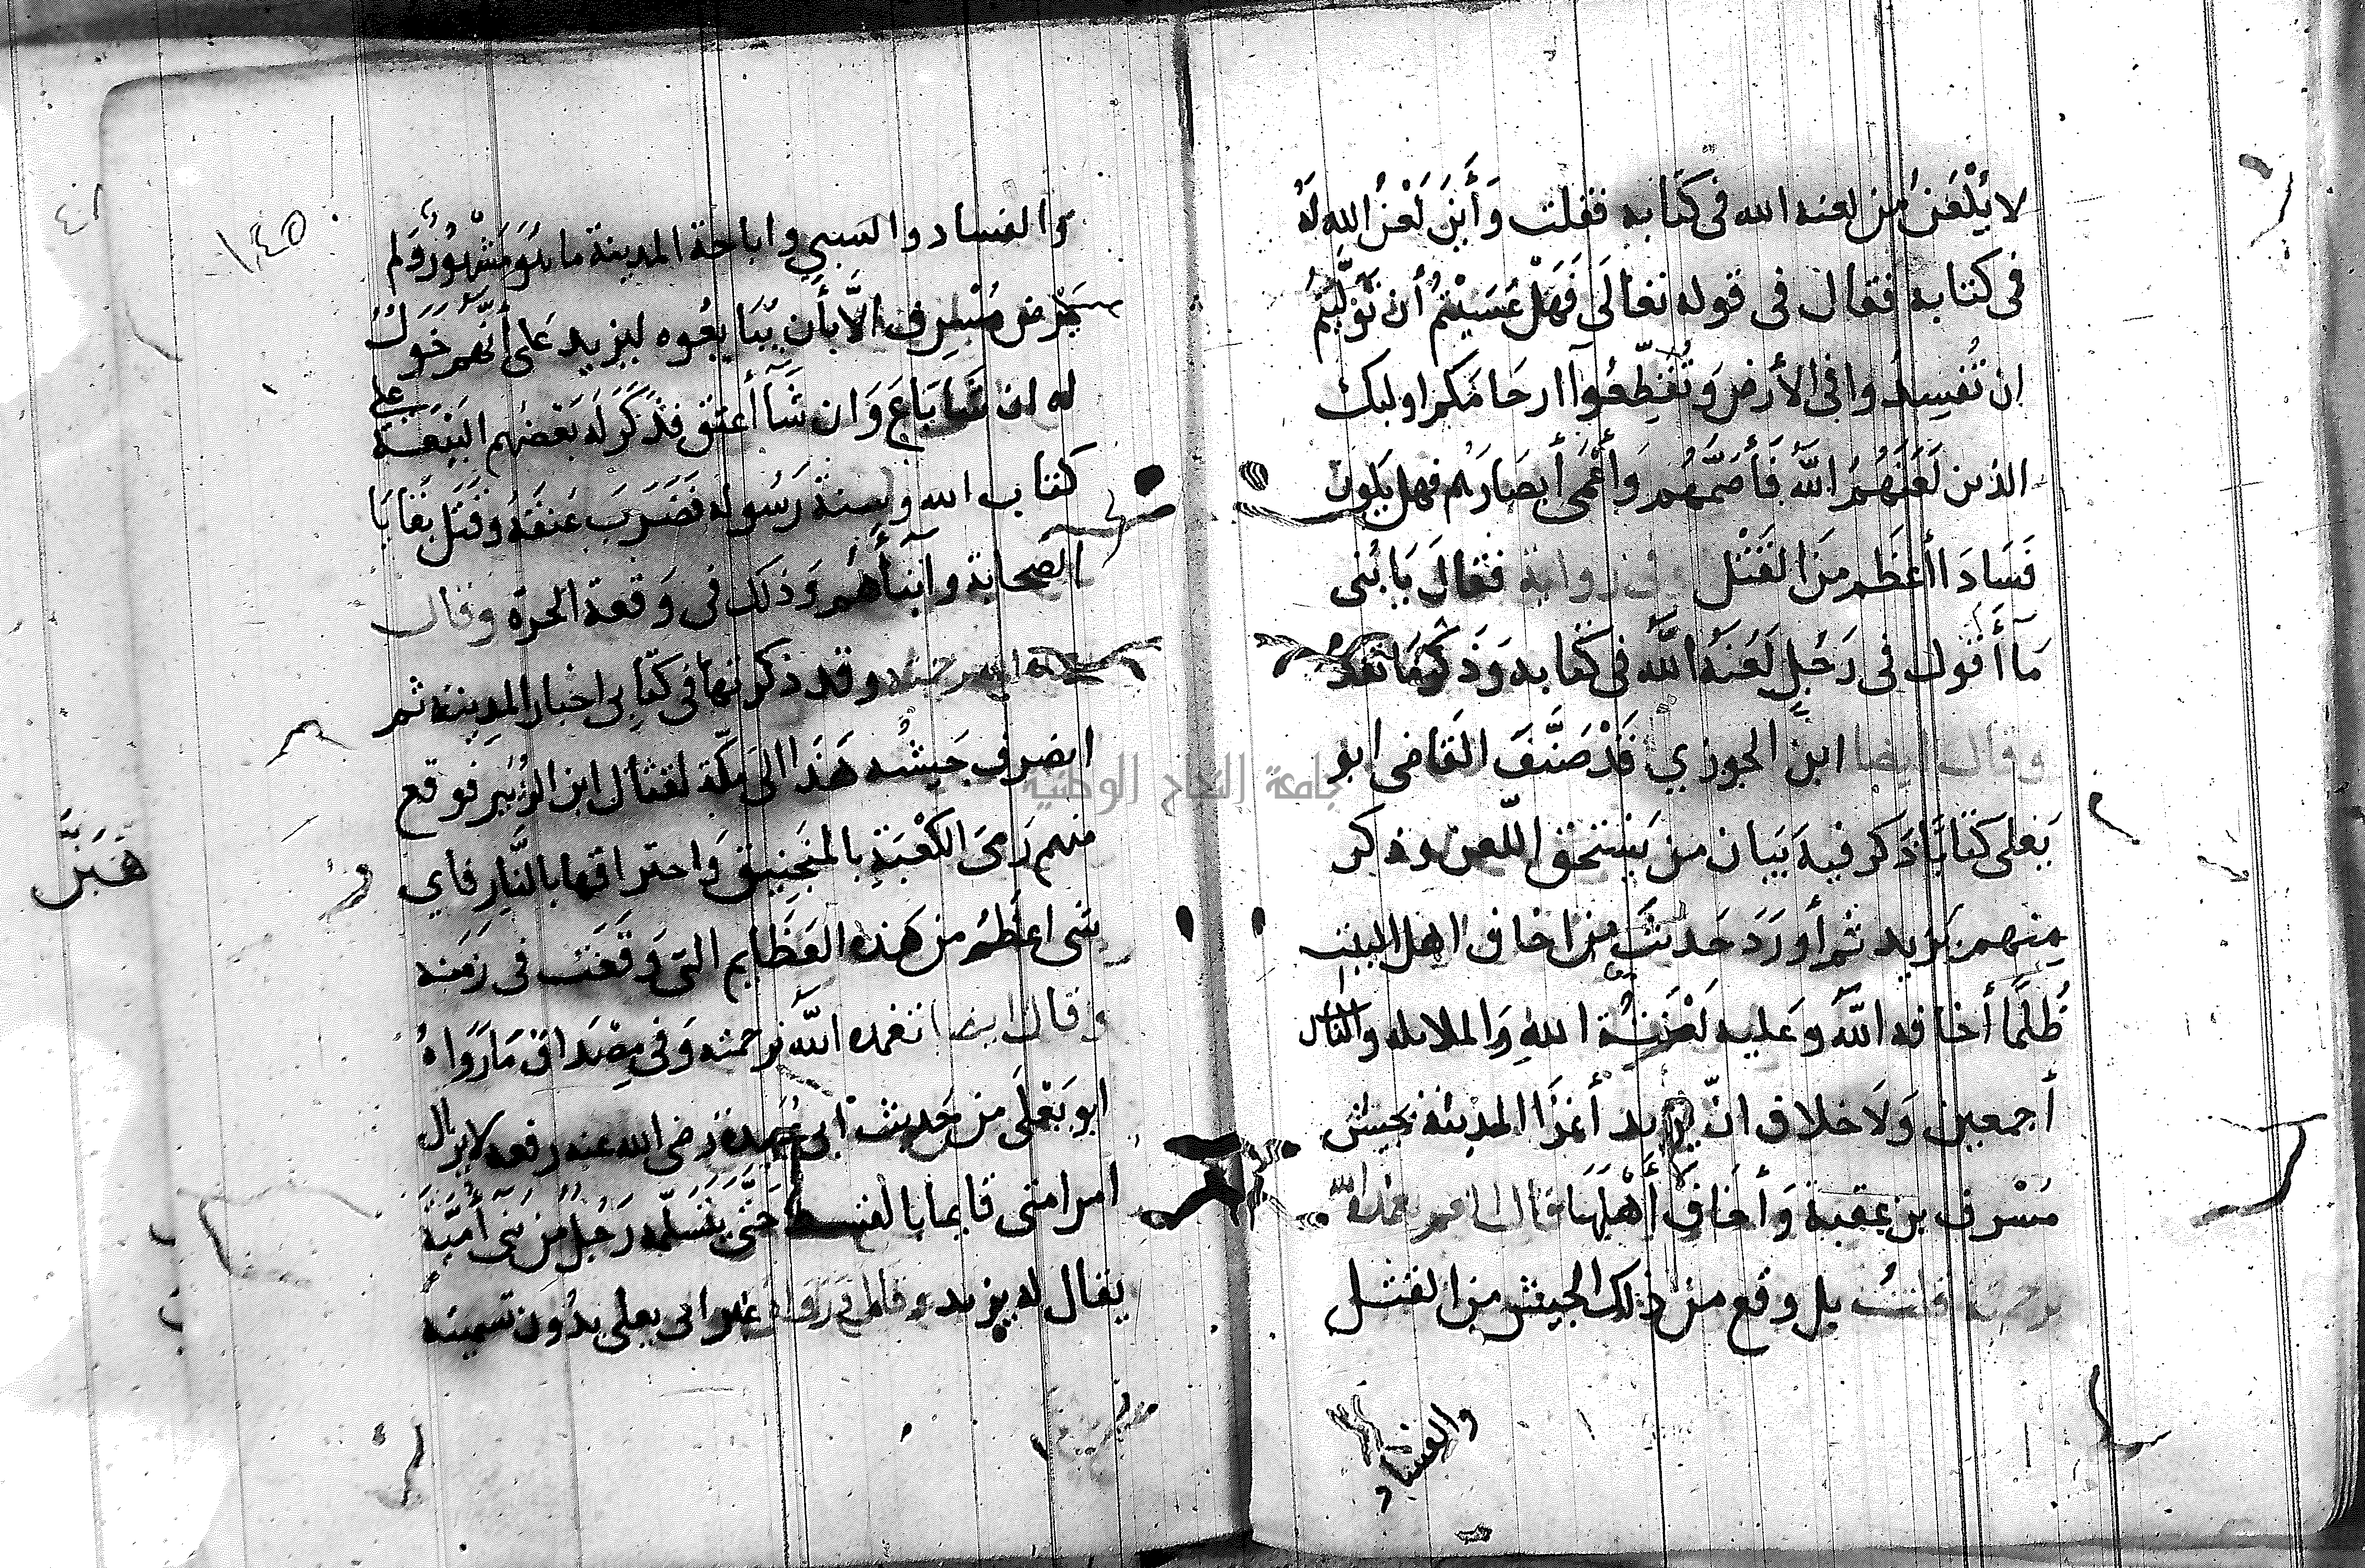 لا يُلْعَنُ مَن لعنه الله فى كتابه فقلت وَأَيْنَ لَعْنُ اللهِ لَهُ
فى كتابه فقال فى قوله تعَالَى فَهَلْ عَسَيْتُمْ أن تَوَلَّيْتُمْ
ان تُفسِدُوا فى الأرضِ وَتُقَطِّعُوا ارحَامَكم اوليك
الذين لَعَنَهُمُ اللَّهُ فَأَصَمَّهُم وَأَعْمَى أبصَارَهُم فهل يَكون
فَسَادَا أعْظَم مِنَ القَتْل وفى رواية فقالَ يَا بُنى
مَا أَقول فى رَجُلٍ لَعَنَهُ اللَّه فى كتابه وَذكَرَهُ
وقال ايضا ابن الجوزي قَدْ صَنَّفَ القَاضى ابو
يَعلى كتَابًا ذكر فيه بَيَان من يَستحق اللّعن وذكر
منهم يزيد ثم أورَدَ حَديث مَن اخاف اهل المدينة
ظُلْمًا أخافه اللَّه وعليه لَعْنَةُ اللهِ وَالملايكه والناس
أجمعين وَلَا خلاف انّ يزيد أغزَا المدينة بجيش
مُسْرف بن عقبة وَأخَافَ أَهْلَهَا قال
برحمته قلتُ بل وقع من ذلك الجيش من القتل
والفساد
١٤٥
والفساد والسبى واباحة المدينة ما هُوَ مَشْهُورٌ وَلم
يَرض مُسْرِف الَّا بأن يُبَايعُوه ليزيد عَلى أنَّهم خَوَلٌ
له ان شَا بَاعَ وَان شَاأَعتقَ فذكَرَ لهُ بَعضُهم البَيْعَة على
كتاب الله وسنة رَسُوله فَضَرَبَ عُنقَهُ وقَتَل بَقَايَا
الصحابة وابنَاهُم وَذلك فى وَقعة الحرّة وقال
وقد ذكرتها فى كتابى اخبار المدينة ثم
انصرف جَيشُه هَذَا الى مَكّة لقتال ابن الزُبَير فوقع
منهم رَمىَ الكَعْبَةِ بالمَنجنيق وَاحتراقها بالنَّارِ فاي
شى اعظمُ من هَذه العَظَايم التى وَقَعَت فى زمَنه
وقال ايضا تغمده اللَّه برحمته وَفى مِصْدَاق مَا رَوَاهُ
ابو يَعْلَى من حَديث ابى عُبَيدة رَضى الله عنه رفعه لا يزال
امر امتى قايما بالقسط حَتَّى يَثْلمَه رَجُل مِن بَنِى أُمَيَّة
يقال له يزيد وفى رواية غير ابى يعلى بدُون تسميته
جامعة النجاح الوطنية